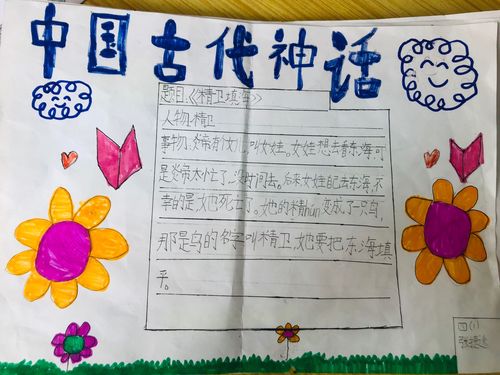 中国古代神话
题目:《精卫填海》
人物:精卫
事物:炎帝有个女儿,叫女娃。女娃想去看东海,可
是炎帝太忙了,没时间去。后来女娃自己去东海,不
幸的是,她死亡了。她的精hún变成了一只鸟,
那是鸟的名字叫精卫,她要把东海填
平。
四(1)